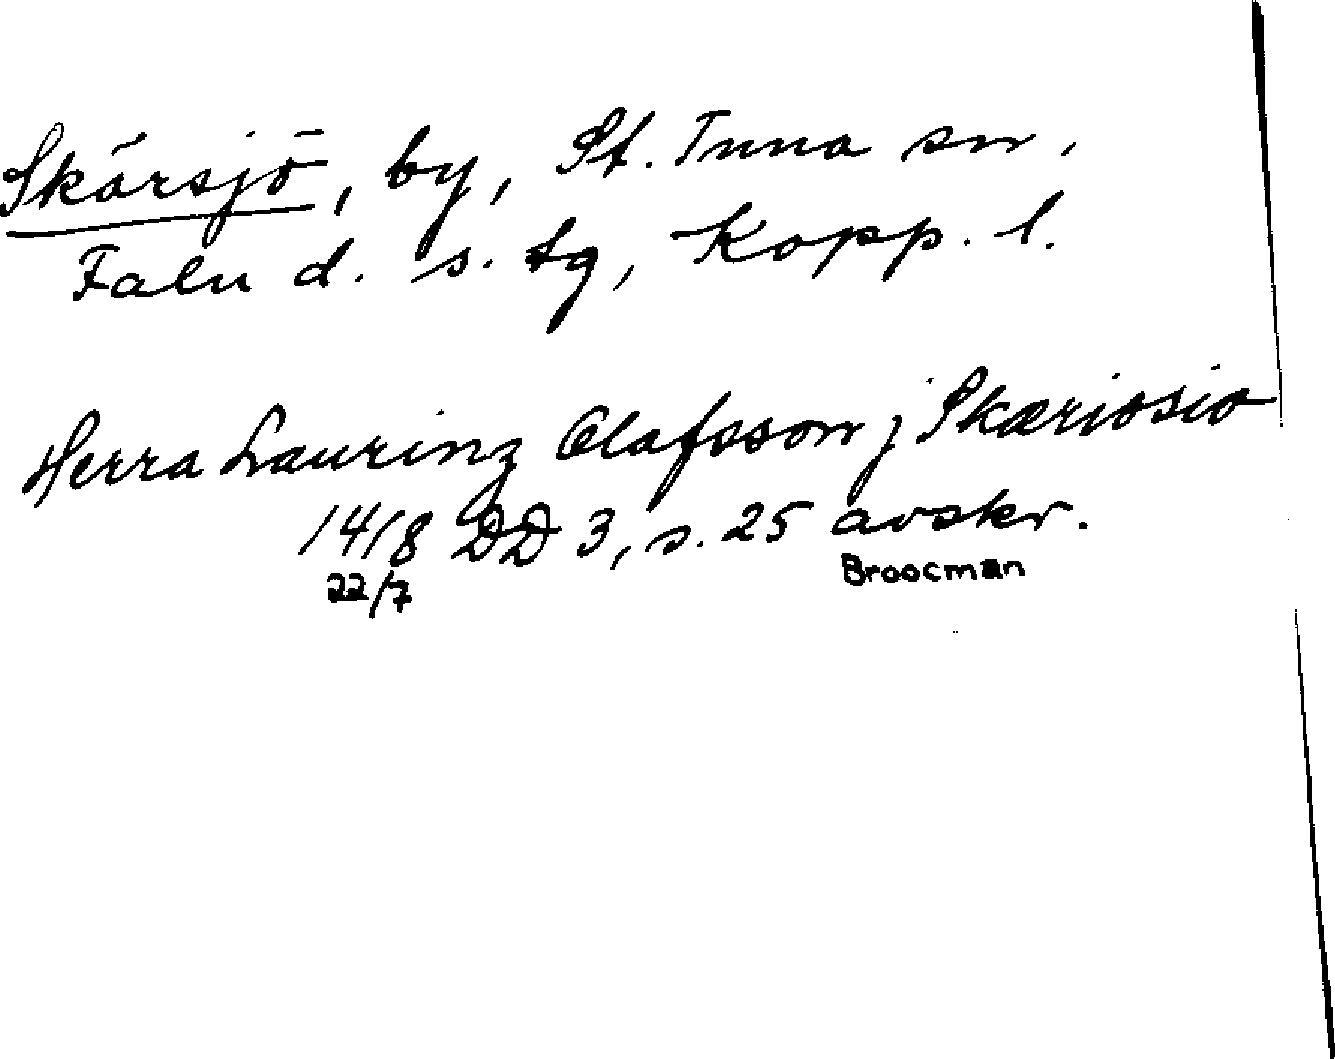 Skärsjö, by, St. Tuna sn,
Falu d. s. tg, Kopp. l.
Herra Laurinz Olafsson j Skæriosio
1418 DD 3, s. 25 avskr.
22/7 Broocman